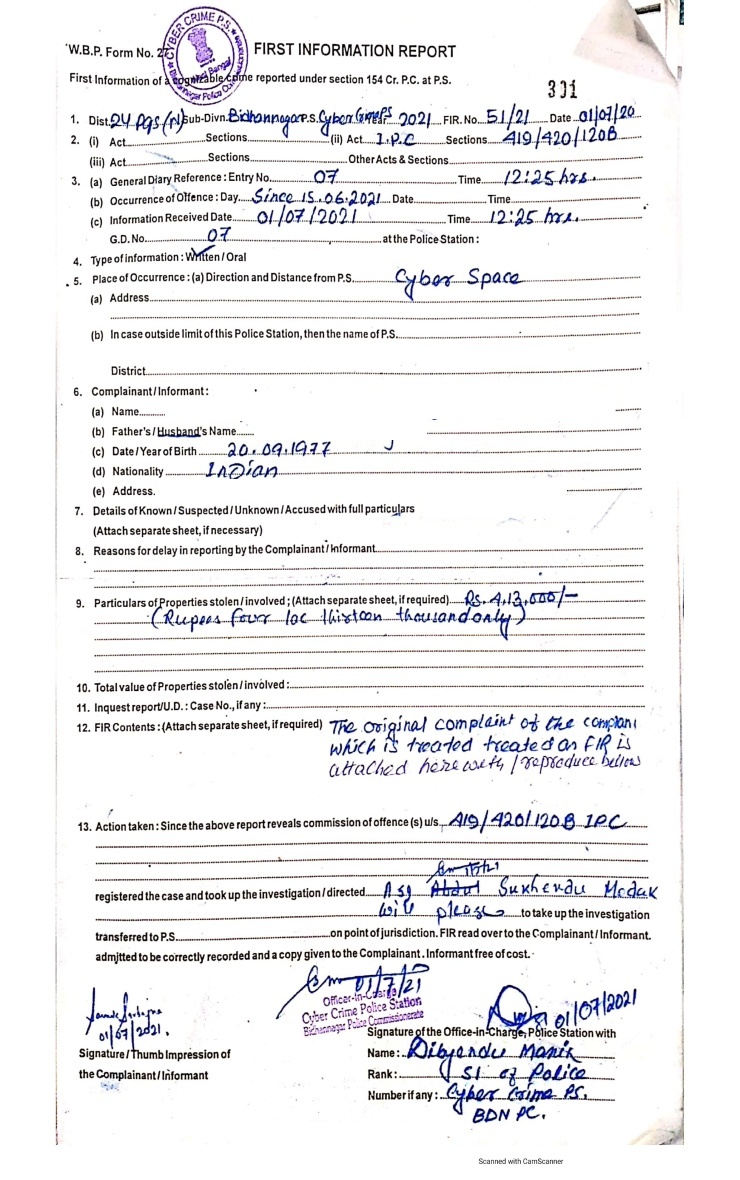 W.B.P. Form No. 27
CYBER CRIME P.S.
FIRST INFORMATION REPORT
First Information of a cognizable crime reported under section 154 Cr. P.C. at P.S.
301
1. Dist. 24 Pgs (N) Sub-Divn. Bidhannagar P.S. Cyber Crime PS Year 2021 FIR. No. 51/21 Date 01/07/20
2. (i) Act Sections (ii) Act I.P.C Sections 419/420/120B
(iii) Act Sections Other Acts & Sections
3. (a) General Diary Reference : Entry No. 07 Time 12:25 hrs.
(b) Occurrence of Offence : Day Since 15.06.2021 Date Time
(c) Information Received Date 01/07/2021 Time 12:25 hrs.
G.D. No. 07 at the Police Station :
4. Type of information : Written / Oral
5. Place of Occurrence : (a) Direction and Distance from P.S. Cyber Space
(a) Address
(b) In case outside limit of this Police Station, then the name of P.S.
District
6. Complainant / Informant :
(a) Name
(b) Father's / Husband's Name
(c) Date / Year of Birth 20.09.1977
(d) Nationality Indian
(e) Address.
7. Details of Known / Suspected / Unknown / Accused with full particulars
(Attach separate sheet, if necessary)
8. Reasons for delay in reporting by the Complainant / Informant
9. Particulars of Properties stolen / involved ; (Attach separate sheet, if required) Rs. 4,13,000/-
(Rupees four lac thirteen thousand only)
10. Total value of Properties stolen / involved :
11. Inquest report / U.D. : Case No., if any :
12. FIR Contents : (Attach separate sheet, if required) The original complaint of the complani
which is treated treated as FIR is
attached herewith / reproduce bellow
13. Action taken : Since the above report reveals commission of offence (s) u/s. 419/420/120B IPC
registered the case and took up the investigation / directed ASI Sukhendu Modak
will please to take up the investigation
transferred to P.S. on point of jurisdiction. FIR read over to the Complainant / Informant.
admitted to be correctly recorded and a copy given to the Complainant. Informant free of cost.
01/7/21
Officer-In-Charge
Cyber Crime Police Station
Bidhannagar Police Commissionerate
01/07/2021.
01/07/2021
Signature of the Office-in-Charge, Police Station with
Signature / Thumb Impression of
the Complainant / Informant
Name : Dibyendu Manik
Rank : SI of Police
Number if any : Cyber Crime PS.
BDN PC.
Scanned with CamScanner